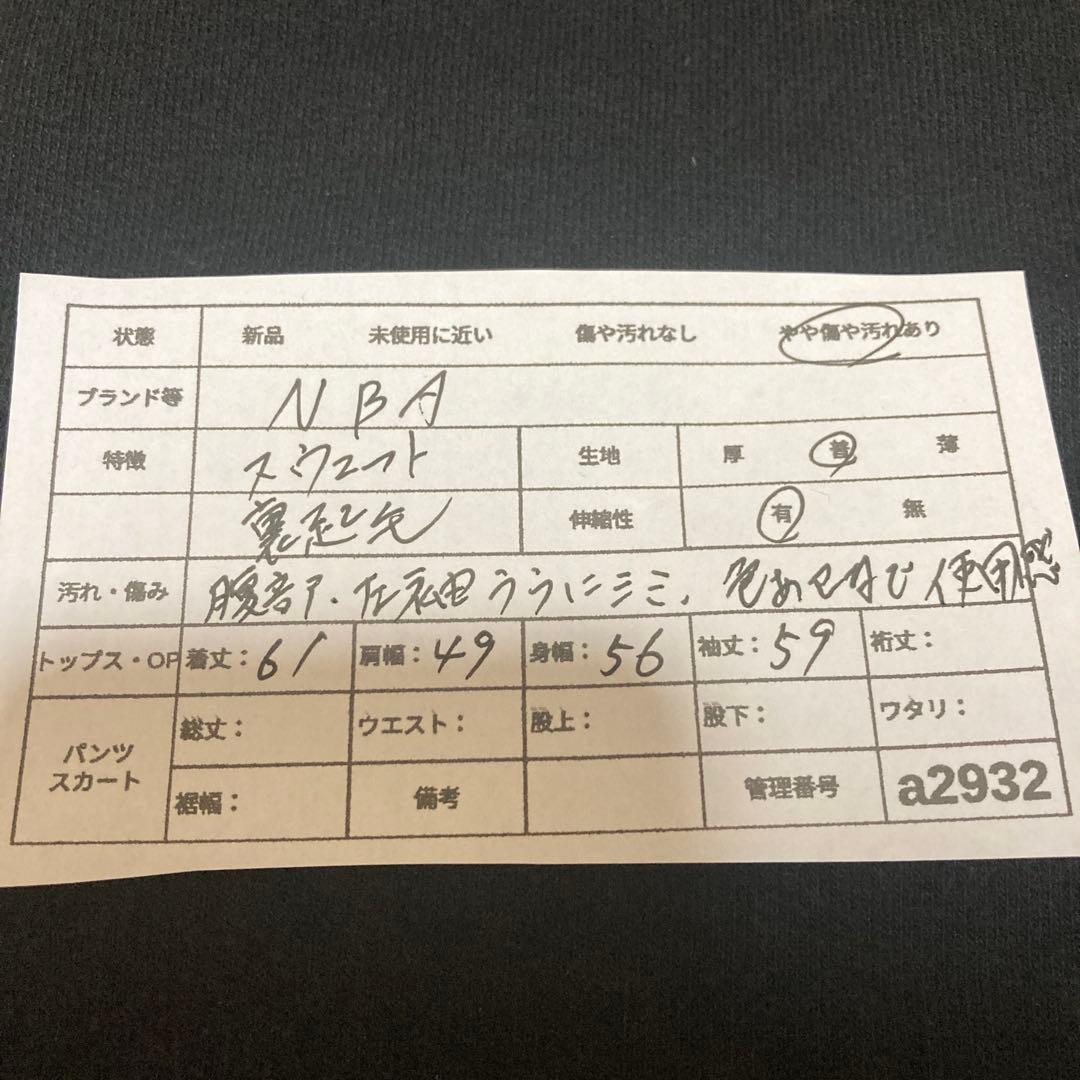 状態 新品 未使用に近い 傷や汚れなし やや傷や汚れあり
ブランド等 NBA
特徴 スウェット 生地 厚 普 薄
裏起毛 伸縮性 有 無
汚れ・傷み 腹部、左袖裏うらにシミ、色あせなど使用感
トップス・OP 着丈：61 肩幅：49 身幅：56 袖丈：59 裄丈：
パンツ スカート 総丈： ウエスト： 股上： 股下： ワタリ：
裾幅： 備考 管理番号 a2932